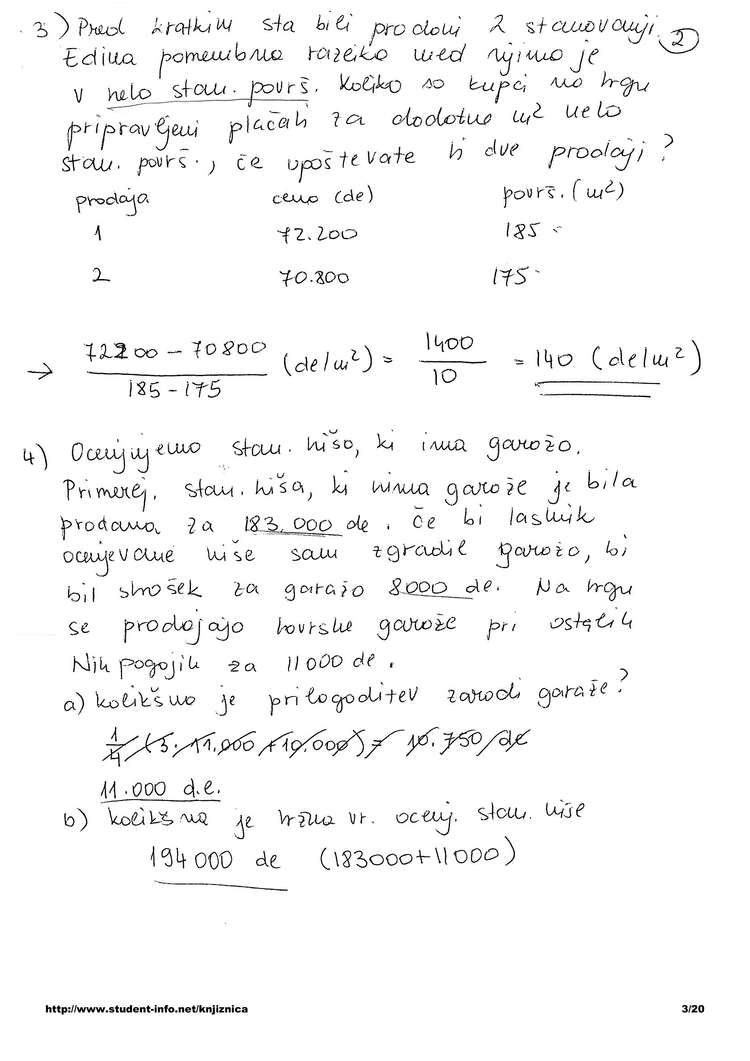 3) Pred kratkim sta bili prodani 2 stanovanji. 2
Edina pomembna razlika med njima je
v neto stan. površ. Koliko so kupci na trgu
pripravljeni plačati za dodatne m² neto
stan. površ., če upoštevate ti dve prodaji?
prodaja cena (de) površ. (m²)
1 72.200 185
2 70.800 175
→ 72200 - 70800 / 185 - 175 (de/m²) = 1400 / 10 = 140 (de/m²)
4) Ocenjujemo stan. hišo, ki ima garažo.
Primerej. stan. hiša, ki nima garaže je bila
prodana za 183.000 de. če bi lastnik
ocenjevane hiše sam zgradil garažo, bi
bil strošek za garažo 8000 de. Na trgu
se prodajajo tovrstne garaže pri ostalih
Nih pogojih za 11000 de.
a) kolikšno je prilagoditev zaradi garaže?
1/4 (3.11.000 + 10.000) = 10.750 de
11.000 d.e.
b) kolikšna je tržna vr. ocenj. stan. hiše
194000 de (183000+11000)
http://www.student-info.net/knjiznica 3/20